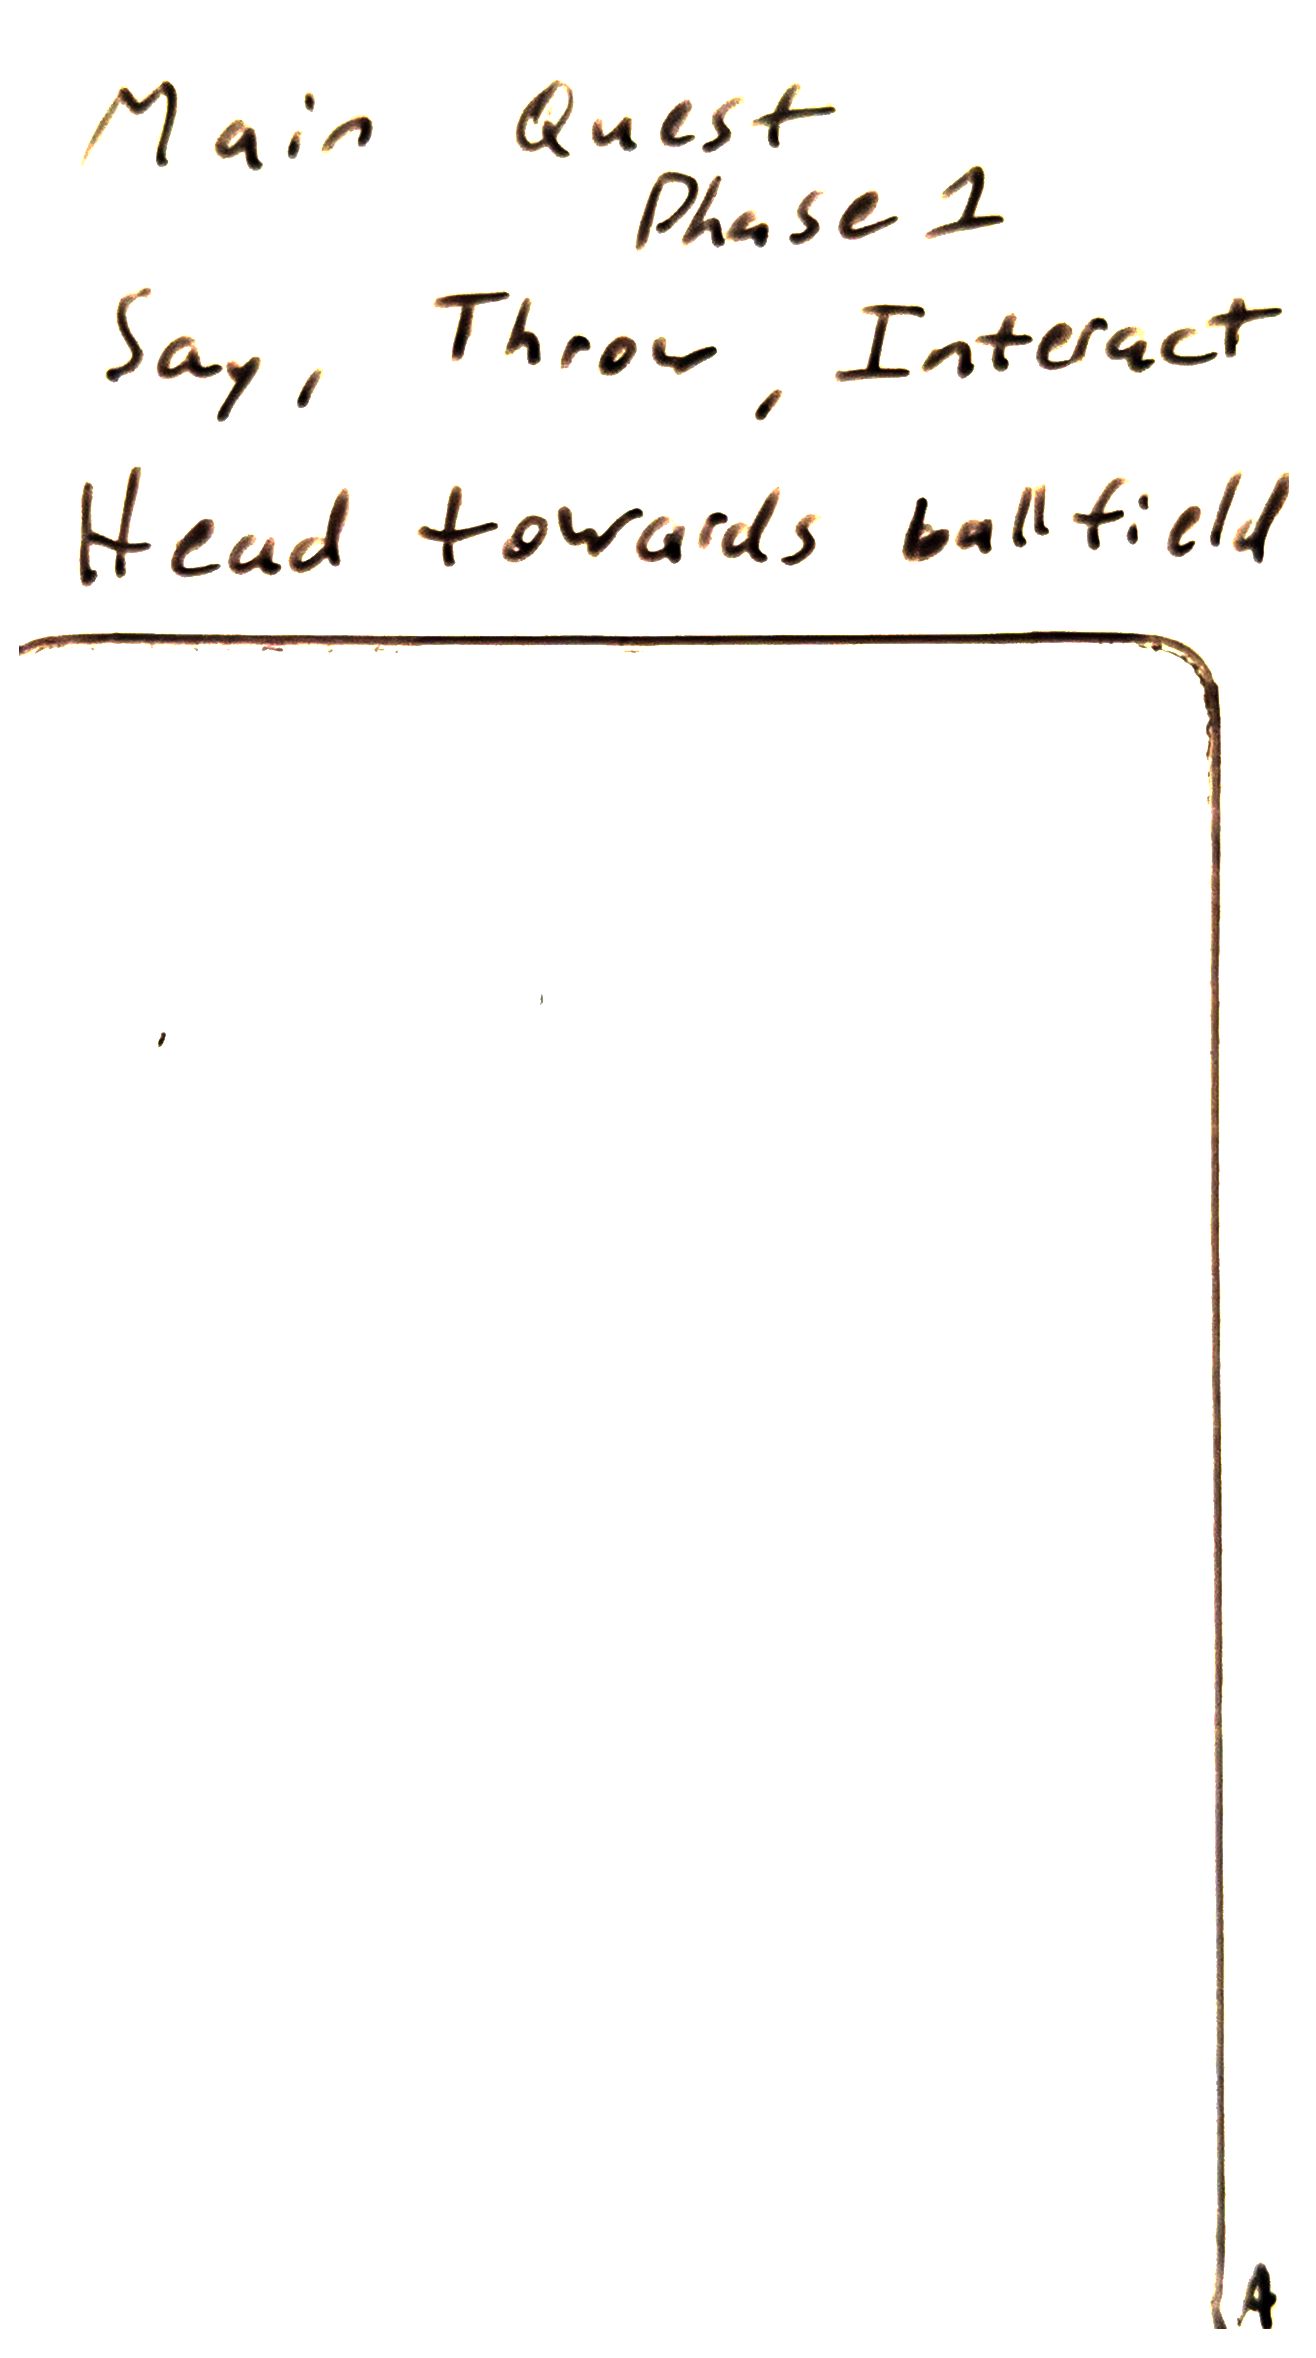 Main Quest
Phase 1
Say, Throw, Interact
Head towards ballfield
A